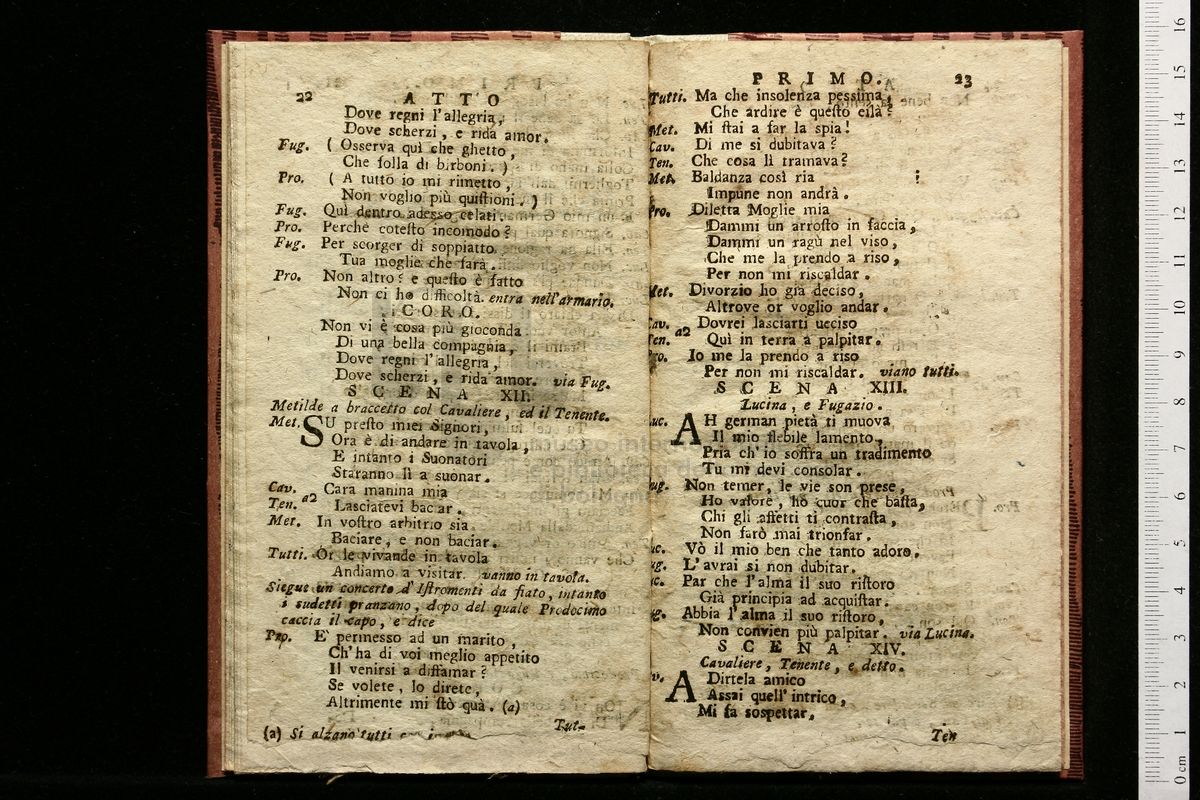 22 ATTO
Dove regni l'allegria,
Dove scherzi, e rida amor.
Fug. ( Osserva quì che ghetto,
Che folla di birboni. )
Pro. ( A tutto io mi rimetto,
Non voglio più quistioni. )
Fug. Quì dentro adesso celati.
Pro. Perchè cotesto incomodo?
Fug. Per scorger di soppiatto
Tua moglie che farà.
Pro. Non altro? e questo è fatto
Non ci ho difficoltà. entra nell'armario.
CORO.
Non vi è cosa più gioconda
Di una bella compagnia,
Dove regni l'allegria,
Dove scherzi, e rida amor. via Fug.
SCENA XII.
Metilde a braccetto col Cavaliere, ed il Tenente.
Met. SU presto miei Signori,
Ora è di andare in tavola,
E intanto i Suonatori
Staranno lì a suonar.
Cav. Cara manina mia
Ten. a2 Lasciatevi baciar.
Met. In vostro arbitrio sia
Baciare, e non baciar.
Tutti. Or le vivande in tavola
Andiamo a visitar. vanno in tavola.
Siegue un concerto d'Istromenti da fiato, intanto
i sudetti pranzano, dopo del quale Prodocimo
caccia il capo, e dice
Pro. E' permesso ad un marito,
Ch'ha di voi meglio appetito
Il venirsi a disfamar?
Se volete, lo direte,
Altrimente mi stò quà. (a)
Tut-
(a) Si alzano tutti
PRIMO. 23
Tutti. Ma che insolenza pessima,
Che ardire è questo eilà?
Met. Mi stai a far la spia!
Cav. Di me si dubitava?
Ten. Che cosa lì tramava?
Met. Baldanza così ria
Impune non andrà.
Pro. Diletta Moglie mia
Dammi un arrosto in faccia,
Dammi un ragù nel viso,
Che me la prendo a riso,
Per non mi riscaldar.
Met. Divorzio ho già deciso,
Altrove or voglio andar.
Cav. Dovrei lasciarti ucciso
Ten. a2 Quì in terra a palpitar.
Pro. Io me la prendo a riso
Per non mi riscaldar. viano tutti.
SCENA XIII.
Lucina, e Fugazio.
uc. AH german pietà ti muova
Il mio flebile lamento,
Pria ch'io soffra un tradimento
Tu mi devi consolar.
ug. Non temer, le vie son prese,
Ho valore, hò cuor che basta,
Chi gli affetti ti contrasta,
Non farò mai trionfar.
uc. Vò il mio ben che tanto adoro.
ug. L'avrai si non dubitar.
uc. Par che l'alma il suo ristoro
Già principia ad acquistar.
ug. Abbia l'alma il suo ristoro,
Non convien più palpitar. via Lucina.
SCENA XIV.
Cavaliere, Tenente, e detto.
v. A Dirtela amico
Assai quell'intrico,
Mi fa sospettar,
Ten